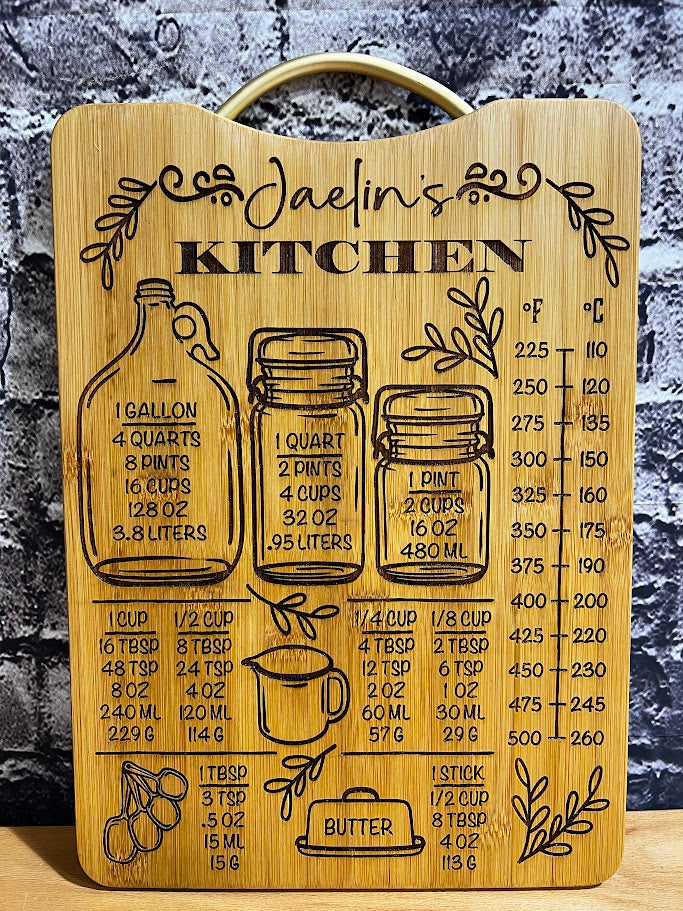 Jaelin's
KITCHEN
1 GALLON
4 QUARTS
8 PINTS
16 CUPS
128 OZ
3.8 LITERS
1 QUART
2 PINTS
4 CUPS
32 OZ
.95 LITERS
1 PINT
2 CUPS
16 OZ
480 ML
°F °C
225 110
250 120
275 135
300 150
325 160
350 175
375 190
400 200
425 220
450 230
475 245
500 260
1 CUP
16 TBSP
48 TSP
8 OZ
240 ML
229 G
1/2 CUP
8 TBSP
24 TSP
4 OZ
120 ML
114 G
1/4 CUP
4 TBSP
12 TSP
2 OZ
60 ML
57 G
1/8 CUP
2 TBSP
6 TSP
1 OZ
30 ML
29 G
1 TBSP
3 TSP
.5 OZ
15 ML
15 G
BUTTER
1 STICK
1/2 CUP
8 TBSP
4 OZ
113 G